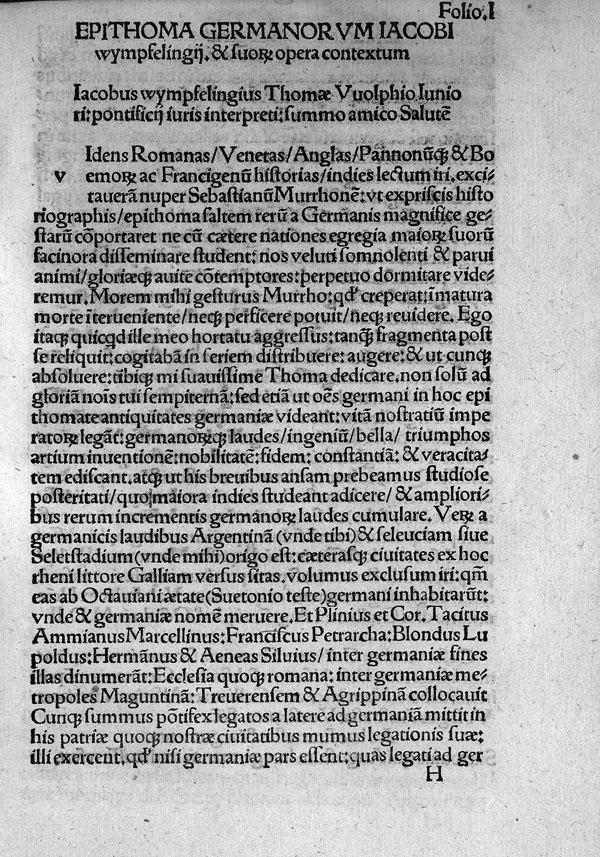 Folio.I
EPITHOMA GERMANORVM IACOBI
wympfelingij. & suoꝝ opera contextum
Iacobus wympfelingius Thomæ Vuolphio Iunio
ri: pontificij iuris interpreti: summo amico Salutē
Idens Romanas/Venetas/Anglas/Pannonūq̃ & Bo
v emoꝝ ac Francigenū historias/indies lectum iri, exci-
tauerā nuper Sebastianū Murrhonē: vt ex priscis histo
riographis/epithoma saltem rerū a Germanis magnifice ge-
starū cōportaret ne cū cætere nationes egregia maioꝝ suorū
facinora disseminare student: nos veluti somnolenti & parui
animi/gloriæq̃ auite cōtemptores: perpetuo dormitare vide-
remur. Morem mihi gesturus Murrho: qď creperat: īmatura
morte īterueniente/neq̃ perficere potuit/neq̃ reuidere. Ego
itaq̃ quicqd ille meo hortatu aggressus: tanq̃ fragmenta post
se reliquit: cogitabā in seriem distribuere: augere: & ut cunq̃
absoluere: tibiq̃ mi suauissime Thoma dedicare. non solū ad
gloriā nois tui sempiternā: sed etiā ut oēs germani in hoc epi
thomate antiquitates germaniæ videant: vitā nostratiū impe
ratoꝝ legāt: germanoꝝq̃ laudes/ingeniū/bella/ triumphos
artium inuentionē: nobilitatē: fidem: constantiā: & veracita-
tem ediscant. atq̃ ut his breuibus ansam prebeamus studiose
posteritati/quo maiora indies studeant adicere/ & ampliori-
bus rerum incrementis germanoꝝ laudes cumulare. Veꝝ a
germanicis laudibus Argentinā (vnde tibi) & seleuciam siue
Seletstadium (vnde mihi) origo est: cæterasq̃ ciuitates ex hoc
rheni littore Galliam versus sitas. volumus exclusum iri: qm̄
eas ab Octauiani ætate (Suetonio teste) germani inhabitarūt:
vnde & germaniæ nomē meruere. Et Plinius et Cor. Tacitus
Ammianus Marcellinus: Franciscus Petrarcha: Blondus Lu
poldus: Hermānus & Aeneas Siluius/ inter germaniæ fines
illas dinumerāt: Ecclesia quoq̃ romana: inter germaniæ me-
tropoles Maguntinā: Treuerensem & Agrippinā collocauit
Cunq̃ summus pōtifex legatos a latere ad germaniā mittit in
his patriæ quoq̃ nostræ ciuitatibus mumus legationis suæ:
illi exercent. qď nisi germaniæ pars essent: quas legati ad ger
H